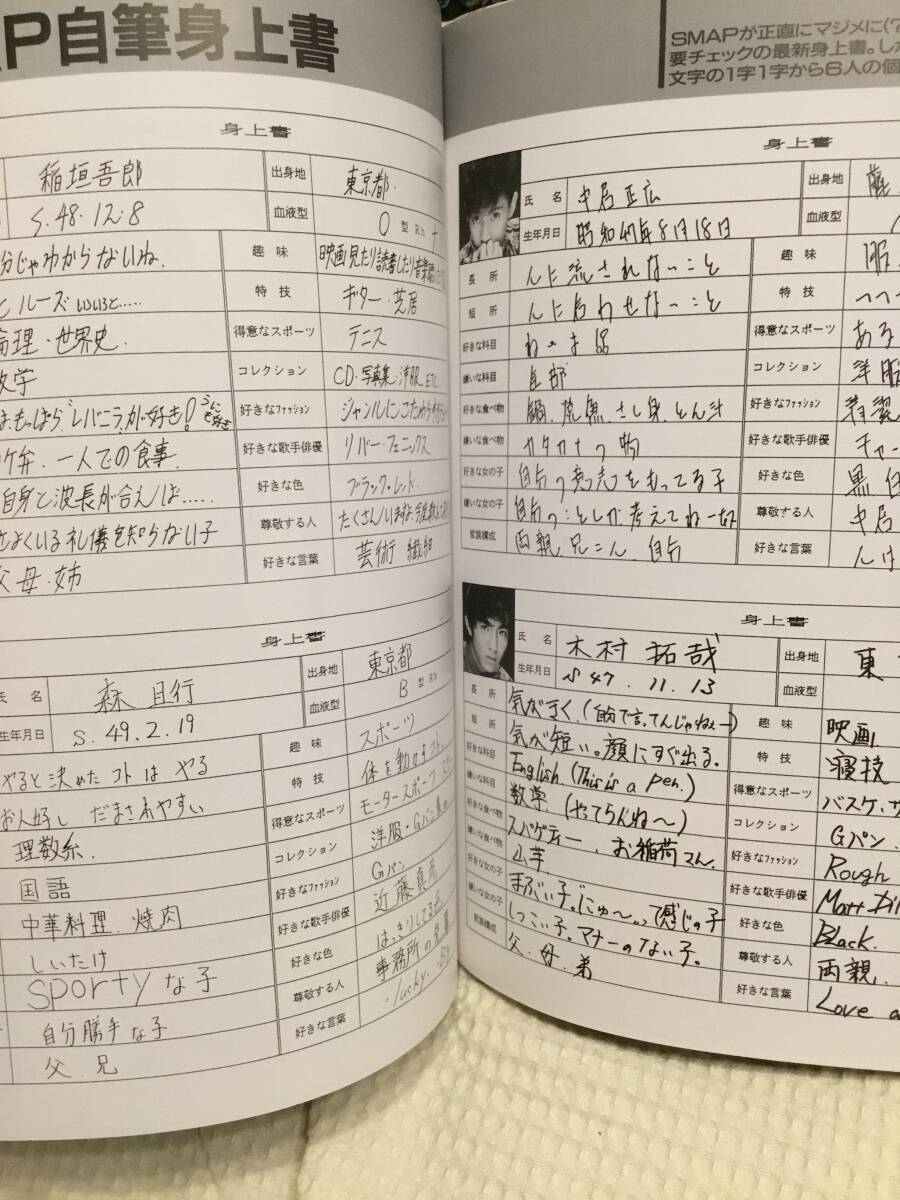 P自筆身上書
身上書
稲垣吾郎
出身地
東京都.
S.48.12.8
血液型
O 型 Rh +
分じゃわからないね.
趣味
映画見たり読書したり音楽
ルーズ いろいろと.....
特技
ギター・芝居
倫理・世界史.
得意なスポーツ
テニス
数学
コレクション
CD・写真集・洋服 ETC.
は、もっぱら"レバニラ"が好き!
うに
も好き
好きなファッション
ジャンルにこだわらず
ケ弁. 一人での食事.
好きな歌手俳優
リバー・フェニックス
自身と波長が合えば.....
好きな色
ブラック・レッド.
いる礼儀を知らない子
尊敬する人
たくさんいますね
父母・姉
好きな言葉
芸術 繊細
身上書
氏名
森 且行
出身地
東京都
生年月日
S.49.2.19
血液型
B 型 Rh
やると決めたコトは やる
趣味
スポーツ
お人好し だまされやすい
特技
体を動かすコト
理数系.
得意なスポーツ
モータースポーツ
国語
コレクション
洋服・Gパン
中華料理. 焼肉
好きなファッション
Gパン
しいたけ
好きな歌手俳優
近藤真彦
sportyな子
好きな色
はっきりしてる色
自分勝手な子
尊敬する人
事務所の先輩
父. 兄
好きな言葉
lucky.
SMAPが正直にマジメに(?
要チェックの最新身上書。しか
文字の1字1字から6人の個
身上書
氏名
中居正広
出身地
生年月日
昭和47年8月18日
血液型
長所
人に流されないこと
趣味
服.
短所
人に合わせないこと
特技
へへへ
好きな科目
得意なスポーツ
ある
嫌いな科目
全部
コレクション
洋服
好きな食べ物
鍋. 焼魚. さし身. とん汁
好きなファッション
嫌いな食べ物
カタカナの物
好きな歌手俳優
チャー
好きな女の子
自分の意志をもってる子
好きな色
黒 白
嫌いな女の子
自分のことしか考えてねー女
尊敬する人
中居
家族構成
両親. 兄二人. 自分
好きな言葉
身上書
氏名
木村拓哉
出身地
東
生年月日
S47.11.13
血液型
長所
気がきく.(自分で言ってんじゃねぇー)
趣味
映画
短所
気が短い。顔にすぐ出る.
特技
寝技
好きな科目
English (This is a pen.)
得意なスポーツ
バスケ.サ
嫌いな科目
数学 (やってらんね〜)
コレクション
Gパン.
好きな食べ物
スパゲティー. お稲荷さん.
好きなファッション
Rough
嫌いな食べ物
山芋.
好きな歌手俳優
Matt Dil
好きな女の子
まぶい子。にゅ〜って感じの子
好きな色
Black.
嫌いな女の子
しつこい子。マナーのない子。
尊敬する人
両親.
家族構成
父.母.弟
好きな言葉
Love a